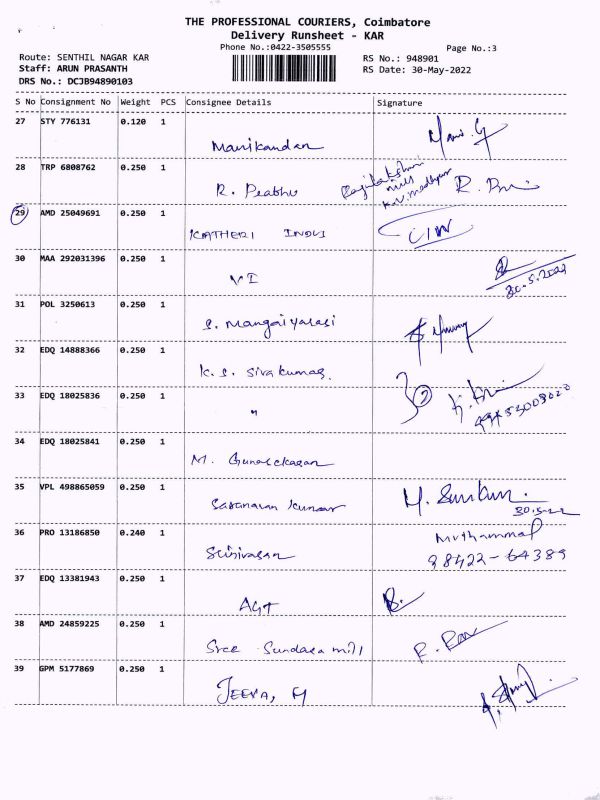 THE PROFESSIONAL COURIERS, Coimbatore
Delivery Runsheet - KAR
Phone No.:0422-3505555
Page No.:3
Route: SENTHIL NAGAR KAR
RS No.: 948901
Staff: ARUN PRASANTH
RS Date: 30-May-2022
DRS No.: DCJB94890103
S No Consignment No Weight PCS Consignee Details Signature
27 STY 776131 0.120 1
Manikandan
28 TRP 6808762 0.250 1
R. Prabhu
29 AMD 25049691 0.250 1
KATHERI INDUS
30 MAA 292031396 0.250 1
VI
30.5.2022
31 POL 3250613 0.250 1
S. Mangaiyarasi
32 EDQ 14888366 0.250 1
K. S. Sivakumar.
33 EDQ 18025836 0.250 1
"
34 EDQ 18025841 0.250 1
M. Gunasekaran
35 VPL 498865059 0.250 1
Saravanan Kumar
36 PRO 13186850 0.240 1
Srinivasan
Muthammal
98422-64389
37 EDQ 13381943 0.250 1
AGT
38 AMD 24859225 0.250 1
Sree Sundara mill
39 GPM 5177869 0.250 1
JEEVA, M